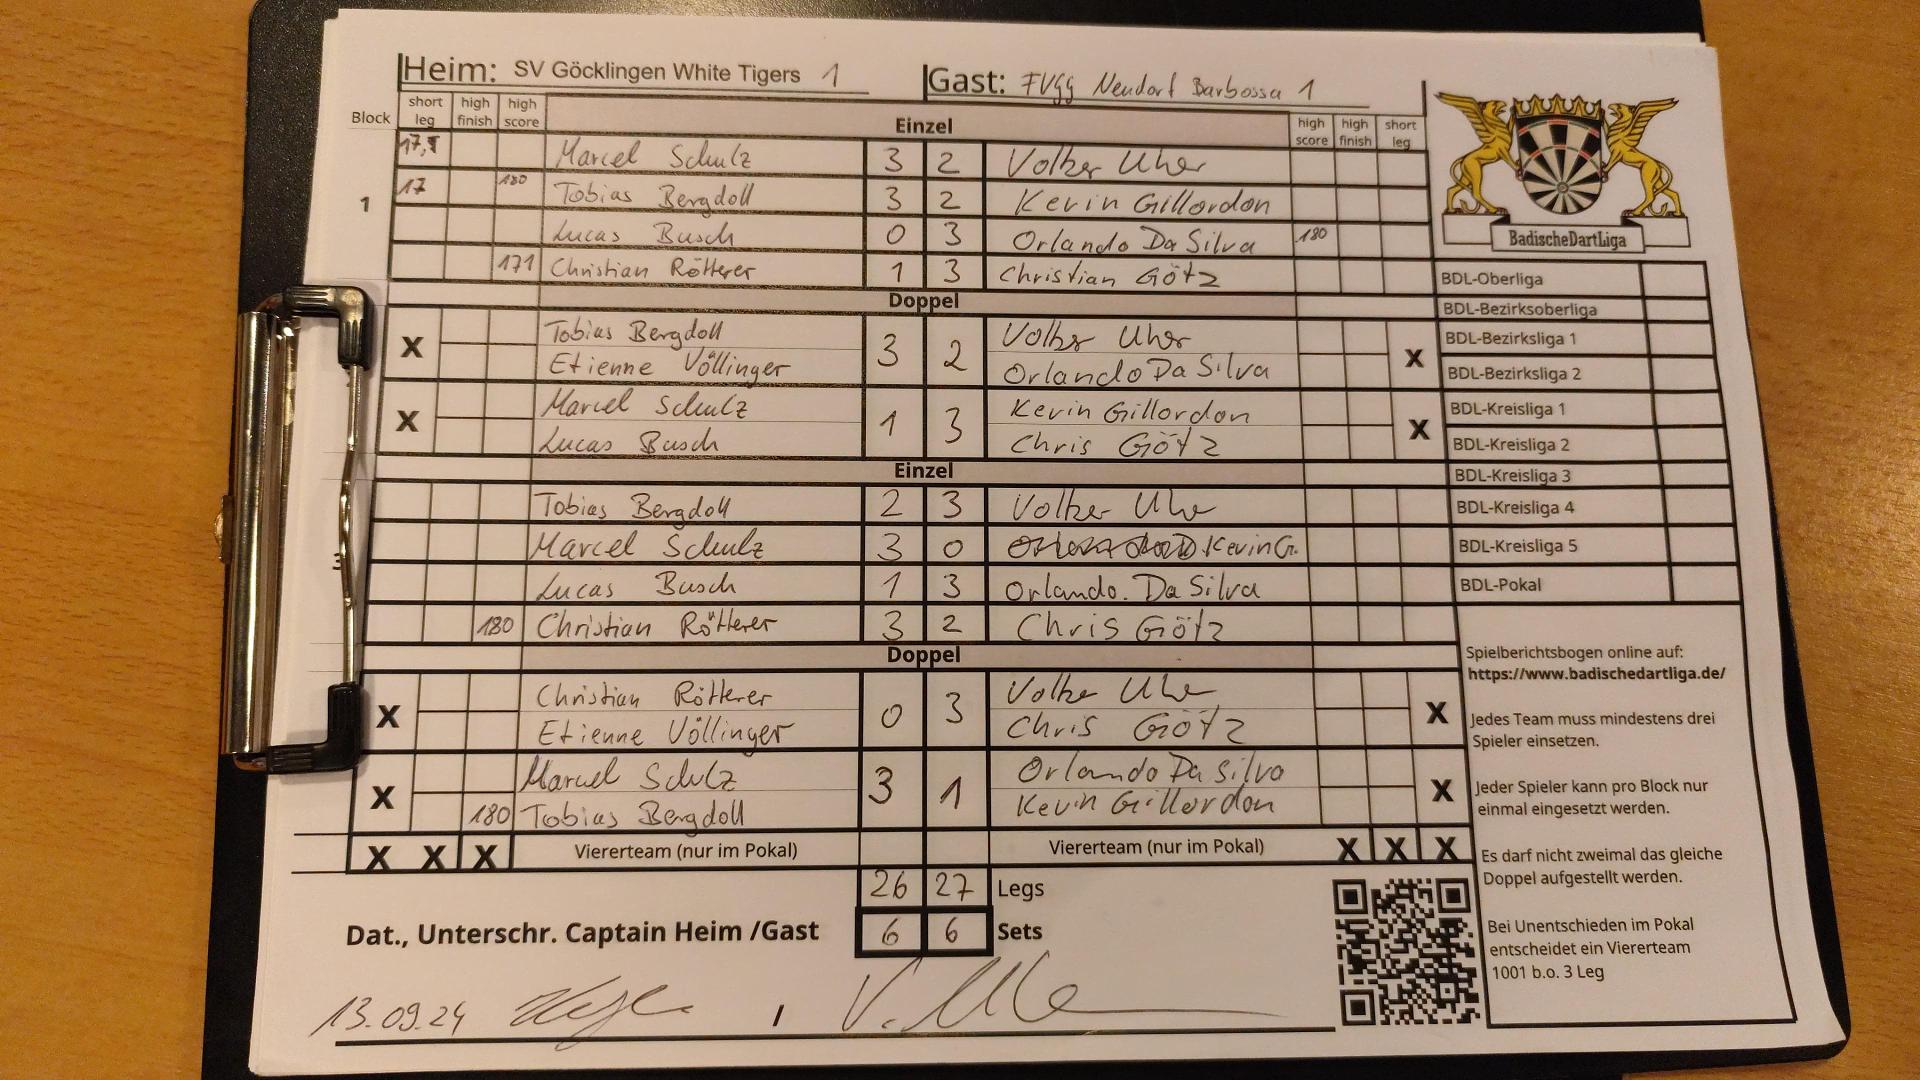 Heim: SV Göcklingen White Tigers 1
Gast: FVgg Neudorf Barbossa 1
Block short leg high finish high score Einzel high score high finish short leg
Marcel Schulz 3 2 Volker Uher
17 180 Tobias Bergdoll 3 2 Kevin Gillordon
1
Lucas Busch 0 3 Orlando Da Silva 180
171 Christian Rötterer 1 3 Christian Götz
Doppel
X Tobias Bergdoll 3 2 Volker Uher X
Etienne Völlinger Orlando Da Silva
X Marcel Schulz 1 3 Kevin Gillordon X
Lucas Busch Chris Götz
Einzel
Tobias Bergdoll 2 3 Volker Uher
Marcel Schulz 3 0 Kevin G.
Lucas Busch 1 3 Orlando. Da Silva
180 Christian Rötterer 3 2 Chris Götz
Doppel
X Christian Rötterer 0 3 Volker Uher X
Etienne Völlinger Chris Götz
X Marcel Schulz 3 1 Orlando Da Silva X
180 Tobias Bergdoll Kevin Gillordon
X X X Viererteam (nur im Pokal) Viererteam (nur im Pokal) X X X
26 27 Legs
Dat., Unterschr. Captain Heim /Gast 6 6 Sets
13.09.24 / V. Uher
BadischeDartLiga
BDL-Oberliga
BDL-Bezirksoberliga
BDL-Bezirksliga 1
BDL-Bezirksliga 2
BDL-Kreisliga 1
BDL-Kreisliga 2
BDL-Kreisliga 3
BDL-Kreisliga 4
BDL-Kreisliga 5
BDL-Pokal
Spielberichtsbogen online auf:
https://www.badischedartliga.de/
Jedes Team muss mindestens drei
Spieler einsetzen.
Jeder Spieler kann pro Block nur
einmal eingesetzt werden.
Es darf nicht zweimal das gleiche
Doppel aufgestellt werden.
Bei Unentschieden im Pokal
entscheidet ein Viererteam
1001 b.o. 3 Leg